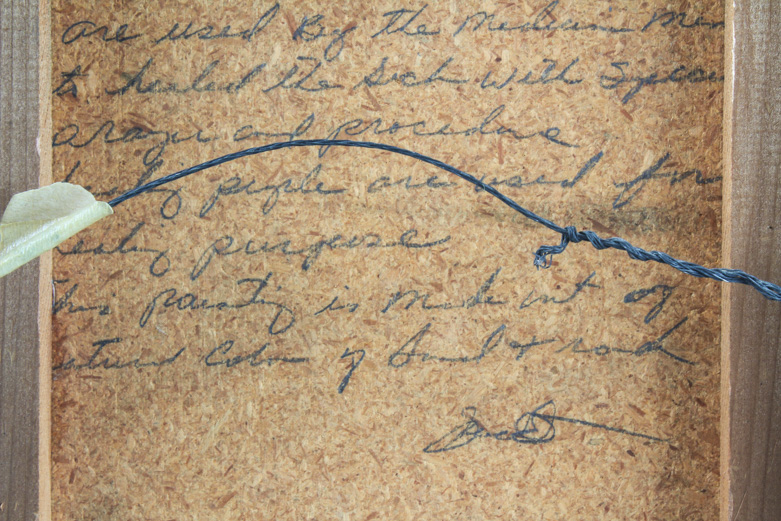 are used By the Medicine Men
to healed the Sick with Speci
prayer and procedure
holy people are used for
ealing purpose
This painting is made out of
atural Color of Sand & rock